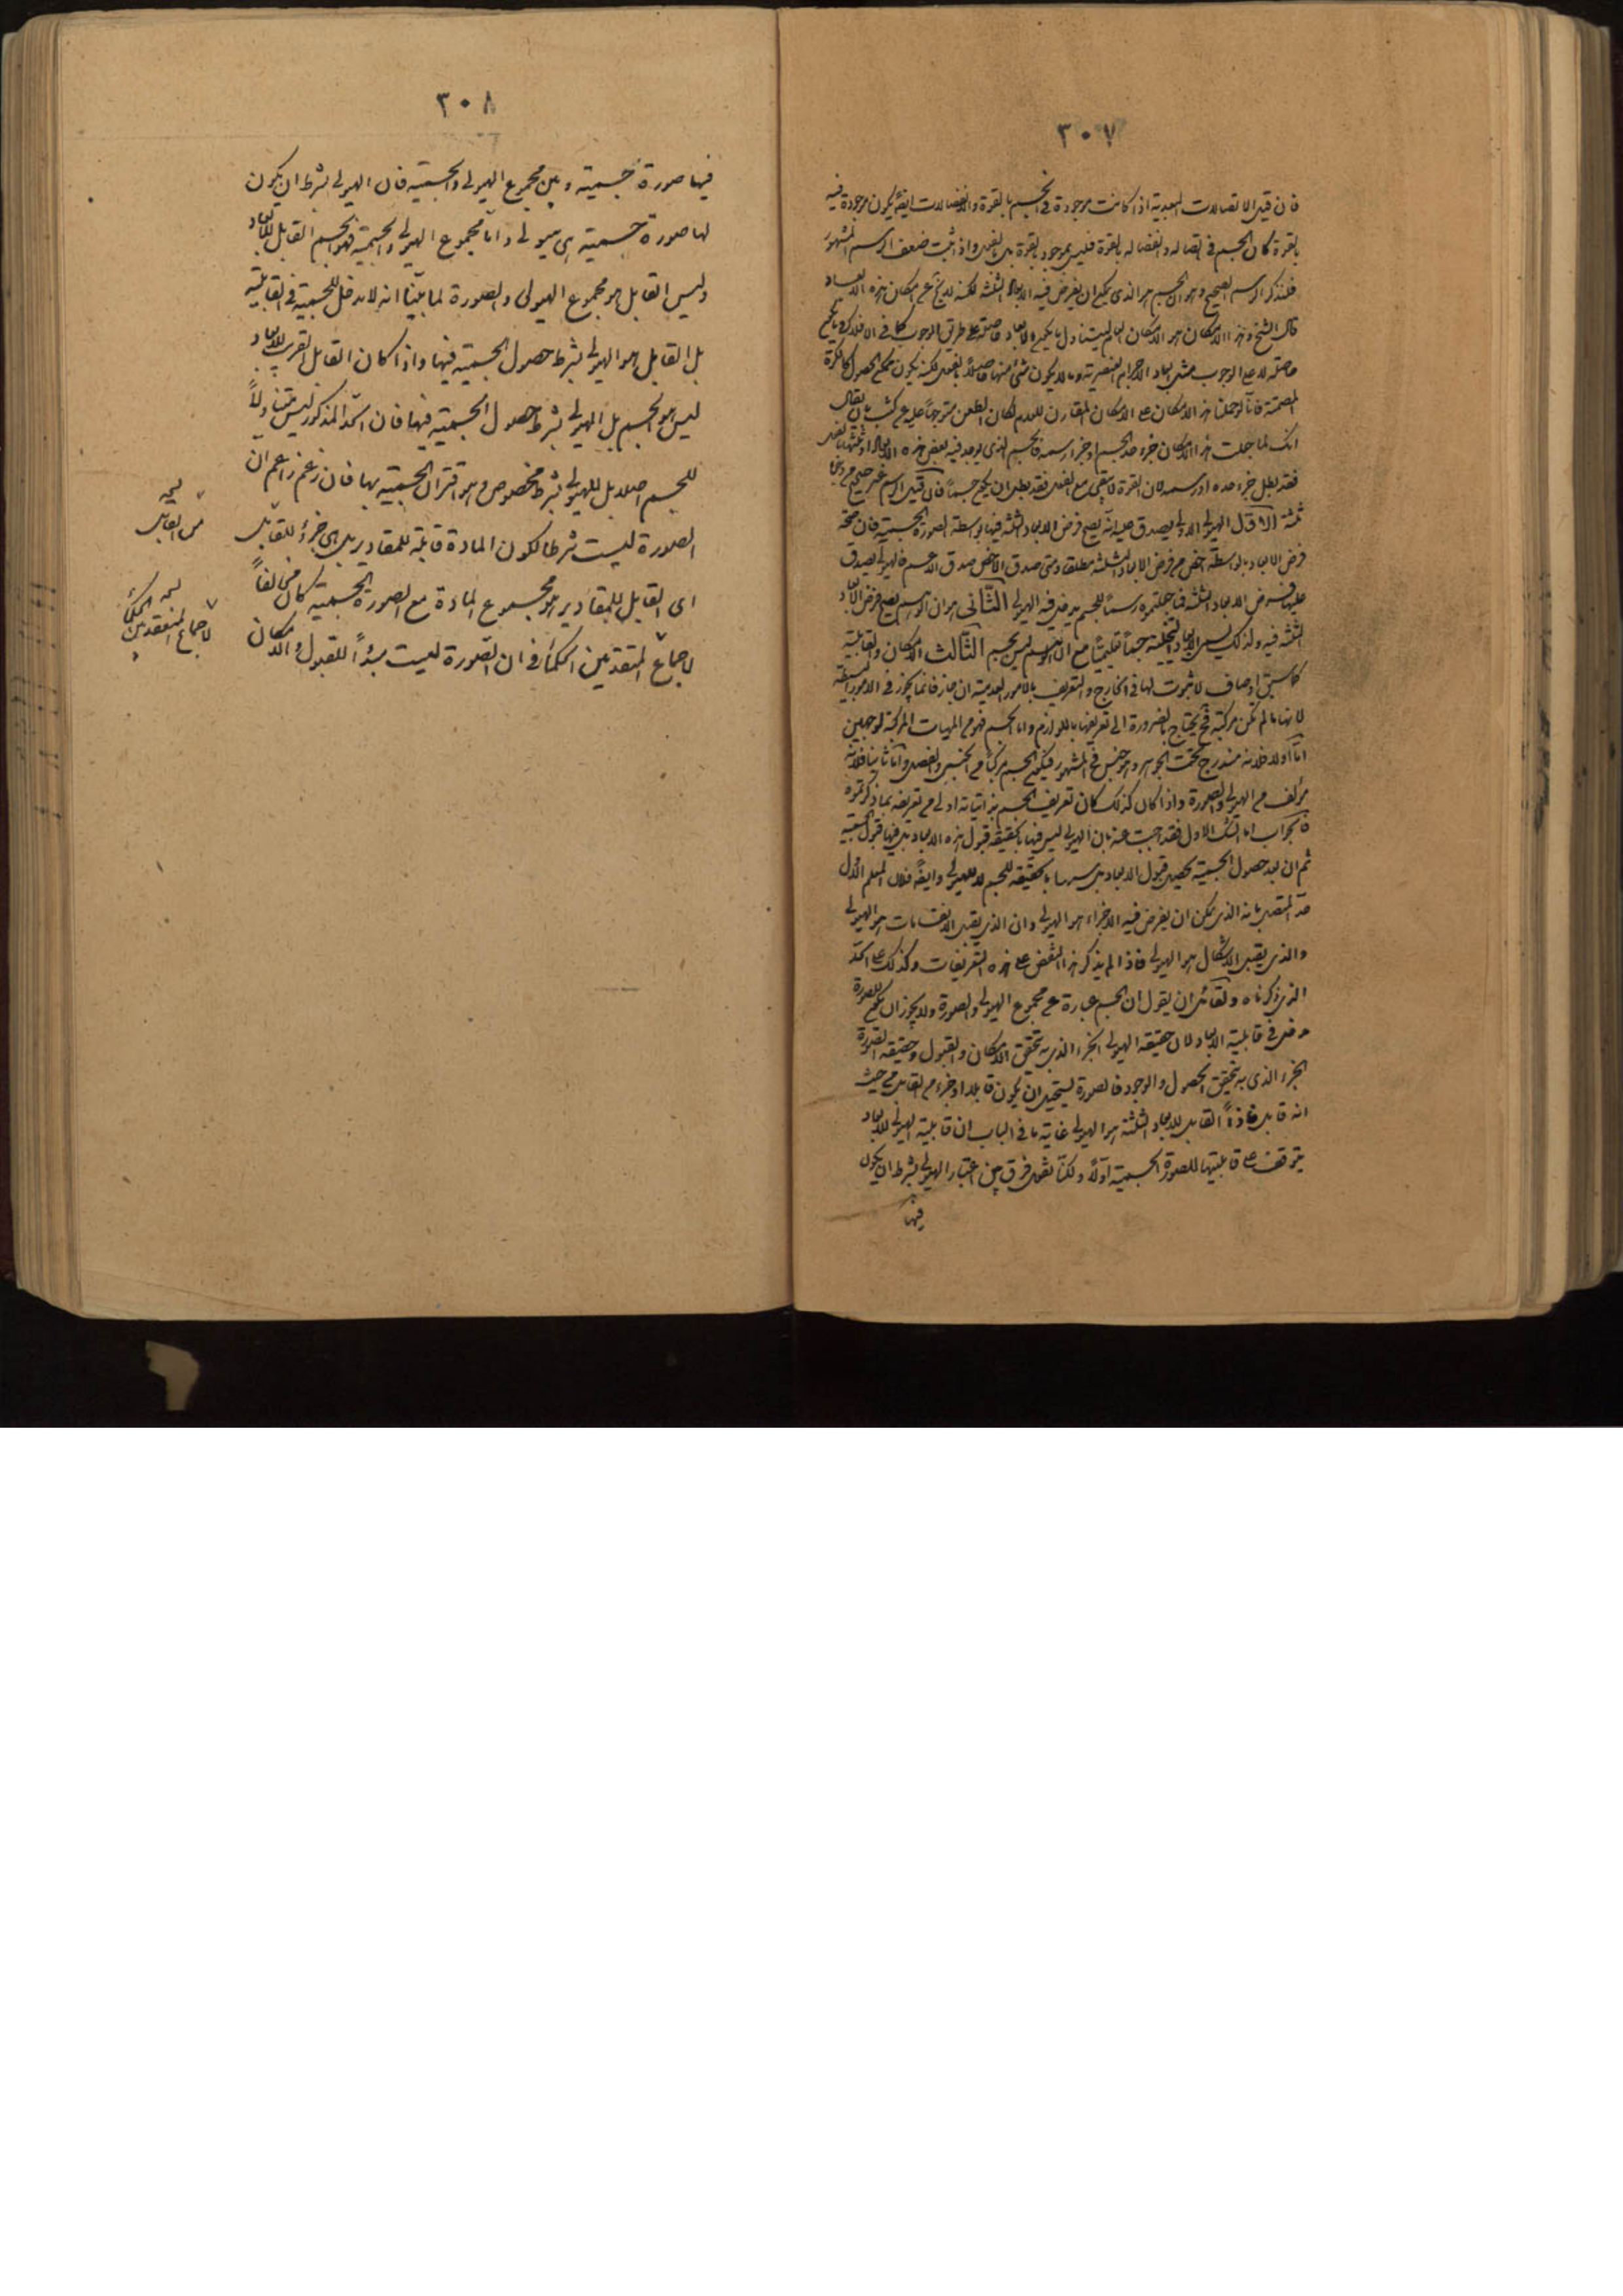 ٣٠٧
فان قيل الاتصالات البعدية اذا كانت موجودة فى الجسم بالقوة والانفصالات ايضاً يكون موجودة فيه
بالقوة كان الجسم فى اتصاله وانفصاله بالقوة فليس بموجود بالقوة بل بالفعل واذا ثبت ضعف الرسم المشهور
فلنذكر الرسم الصحيح وهو ان الجسم هو الذى يمكن ان يفرض فيه الابعاد الثلثة لكنه لا يخ عن امكان هذه الابعاد
قال الشيخ وهذا الامكان هو الامكان العام ليتناول ما يكون الابعاد حاصلة على طريق الوجوب كما فى الافلاك وما يكون
حاصلة لا على الوجوب مثل ابعاد الاجرام العنصرية وما لا يكون شئ منها حاصلاً بالفعل لكنه يكون ممكن الحصول كالكرة
المصمتة فانا لو حملنا هذا الامكان على الامكان المقارن للعدم لكان الطعن متوجهاً عليه
انك لما جعلت هذا الامكان جزء حد الجسم او جزء رسمه فالجسم الذى يوجد فيه بعض هذه الابعاد او كلها بالفعل
فقد بطل جزء حده او رسمه لان القوة لا يبقى مع الفعل فقد بطل ان يكون جسماً فان قيل الرسم غير صحيح من وجوه
ثلثة الاول الهيولى الاولى يصدق عليه انه يصح فرض الابعاد الثلثة فيها بواسطة الصورة الجسمية فان صحة
فرض الابعاد بواسطة اخص من فرض الابعاد الثلثة مطلقا ومتى صدق الاخص صدق الاعم فالهيولى يصدق
عليها فرض الابعاد الثلثة فما جعلتموه رسماً للجسم يدخل فيه الهيولى الثانى هو ان الوهم يصح فرض الابعاد
الثلثة فيه ولذلك يسمى الابعاد المتخيلة جسماً تعليمياً مع ان الوهم ليس بجسم الثالث الامكان والقابلية
كما سبق اوصاف لا ثبوت لها فى الخارج والتعريف بالامور العدمية ان جاز فانما يجوز فى الامور البسيطة
لانها ما لم تكن مركبة فح يحتاج بالضرورة الى تعريفها باللوازم واما الجسم فهو من المهيات المركبة لوجهين
اما اولا فلانه مندرج تحت الجوهر وهو جنس فى المشهور فيكون الجسم مركباً من الجنس والفصل واما ثانيا فلانه
مؤلف من الهيولى والصورة واذا كان كذلك كان تعريف الجسم بذاتياته اولى من تعريفه بما ذكرتموه
فالجواب اما الشك الاول فقد اجبت عنه بان الهيولى ليس فيها بالحقيقة قبول هذه الابعاد بل فيها قبول الجسمية
ثم ان بعد حصول الجسمية يحصل قبول الابعاد بالحقيقة للجسم لا للهيولى وايضاً فلان المعلم الاول
حد المتصل بانه الذى يمكن ان يفرض فيه الاجزاء هو الهيولى وان الذى يقبل الانقسامات هو الهيولى
والذى يقبل الاشكال هو الهيولى فاذا لم يذكر هذا النقض على هذه التعريفات وكذلك على الحد
الذى ذكرناه ولقائل ان يقول ان الجسم عبارة عن مجموع الهيولى والصورة ولا يجوز ان يكون للصورة
مدخل فى قابلية الابعاد لان حقيقة الهيولى الجزء الذى به تحقق الامكان والقبول وحقيقة الصورة
الجزء الذى به تحقق الحصول والوجود فالصورة يستحيل ان يكون قابلا او جزء من القابل من حيث
انه قابل فاذاً القابل للابعاد الثلثة هو الهيولى غاية ما فى الباب ان قابلية الهيولى للابعاد
يتوقف على قابليتها للصورة الجسمية اولاً ولكنا نقول فرق بين اعتبار الهيولى بشرط ان يكون
فيها
٣٠٨
فيها صورة جسمية وبين مجموع الهيولى والجسمية فان الهيولى بشرط ان يكون
لها صورة جسمية هى هيولى واما مجموع الهيولى والجسمية فهو الجسم القابل للابعاد
وليس القابل هو مجموع الهيولى والصورة لما بينا انه لا مدخل للجسمية فى القابلية
بل القابل هو الهيولى بشرط حصول الجسمية فيها واذا كان القابل القريب للابعاد
ليس هو الجسم بل الهيولى بشرط حصول الجسمية فيها فان الحد المذكور ليس متناولاً
للجسم اصلا بل للهيولى بشرط مخصوص وهو اقتران الجسمية بها فان زعم زاعم ان
الصورة ليست شرطا لكون المادة قابلة للمقادير بل هى جزء للقابل
اى القابل للمقادير هو مجموع المادة مع الصورة الجسمية كان مخالفاً
لاجماع المتقدمين الحكماء فى ان الصورة ليست مبدأ للقبول والامكان
من القابل
لاجماع المتقدمين